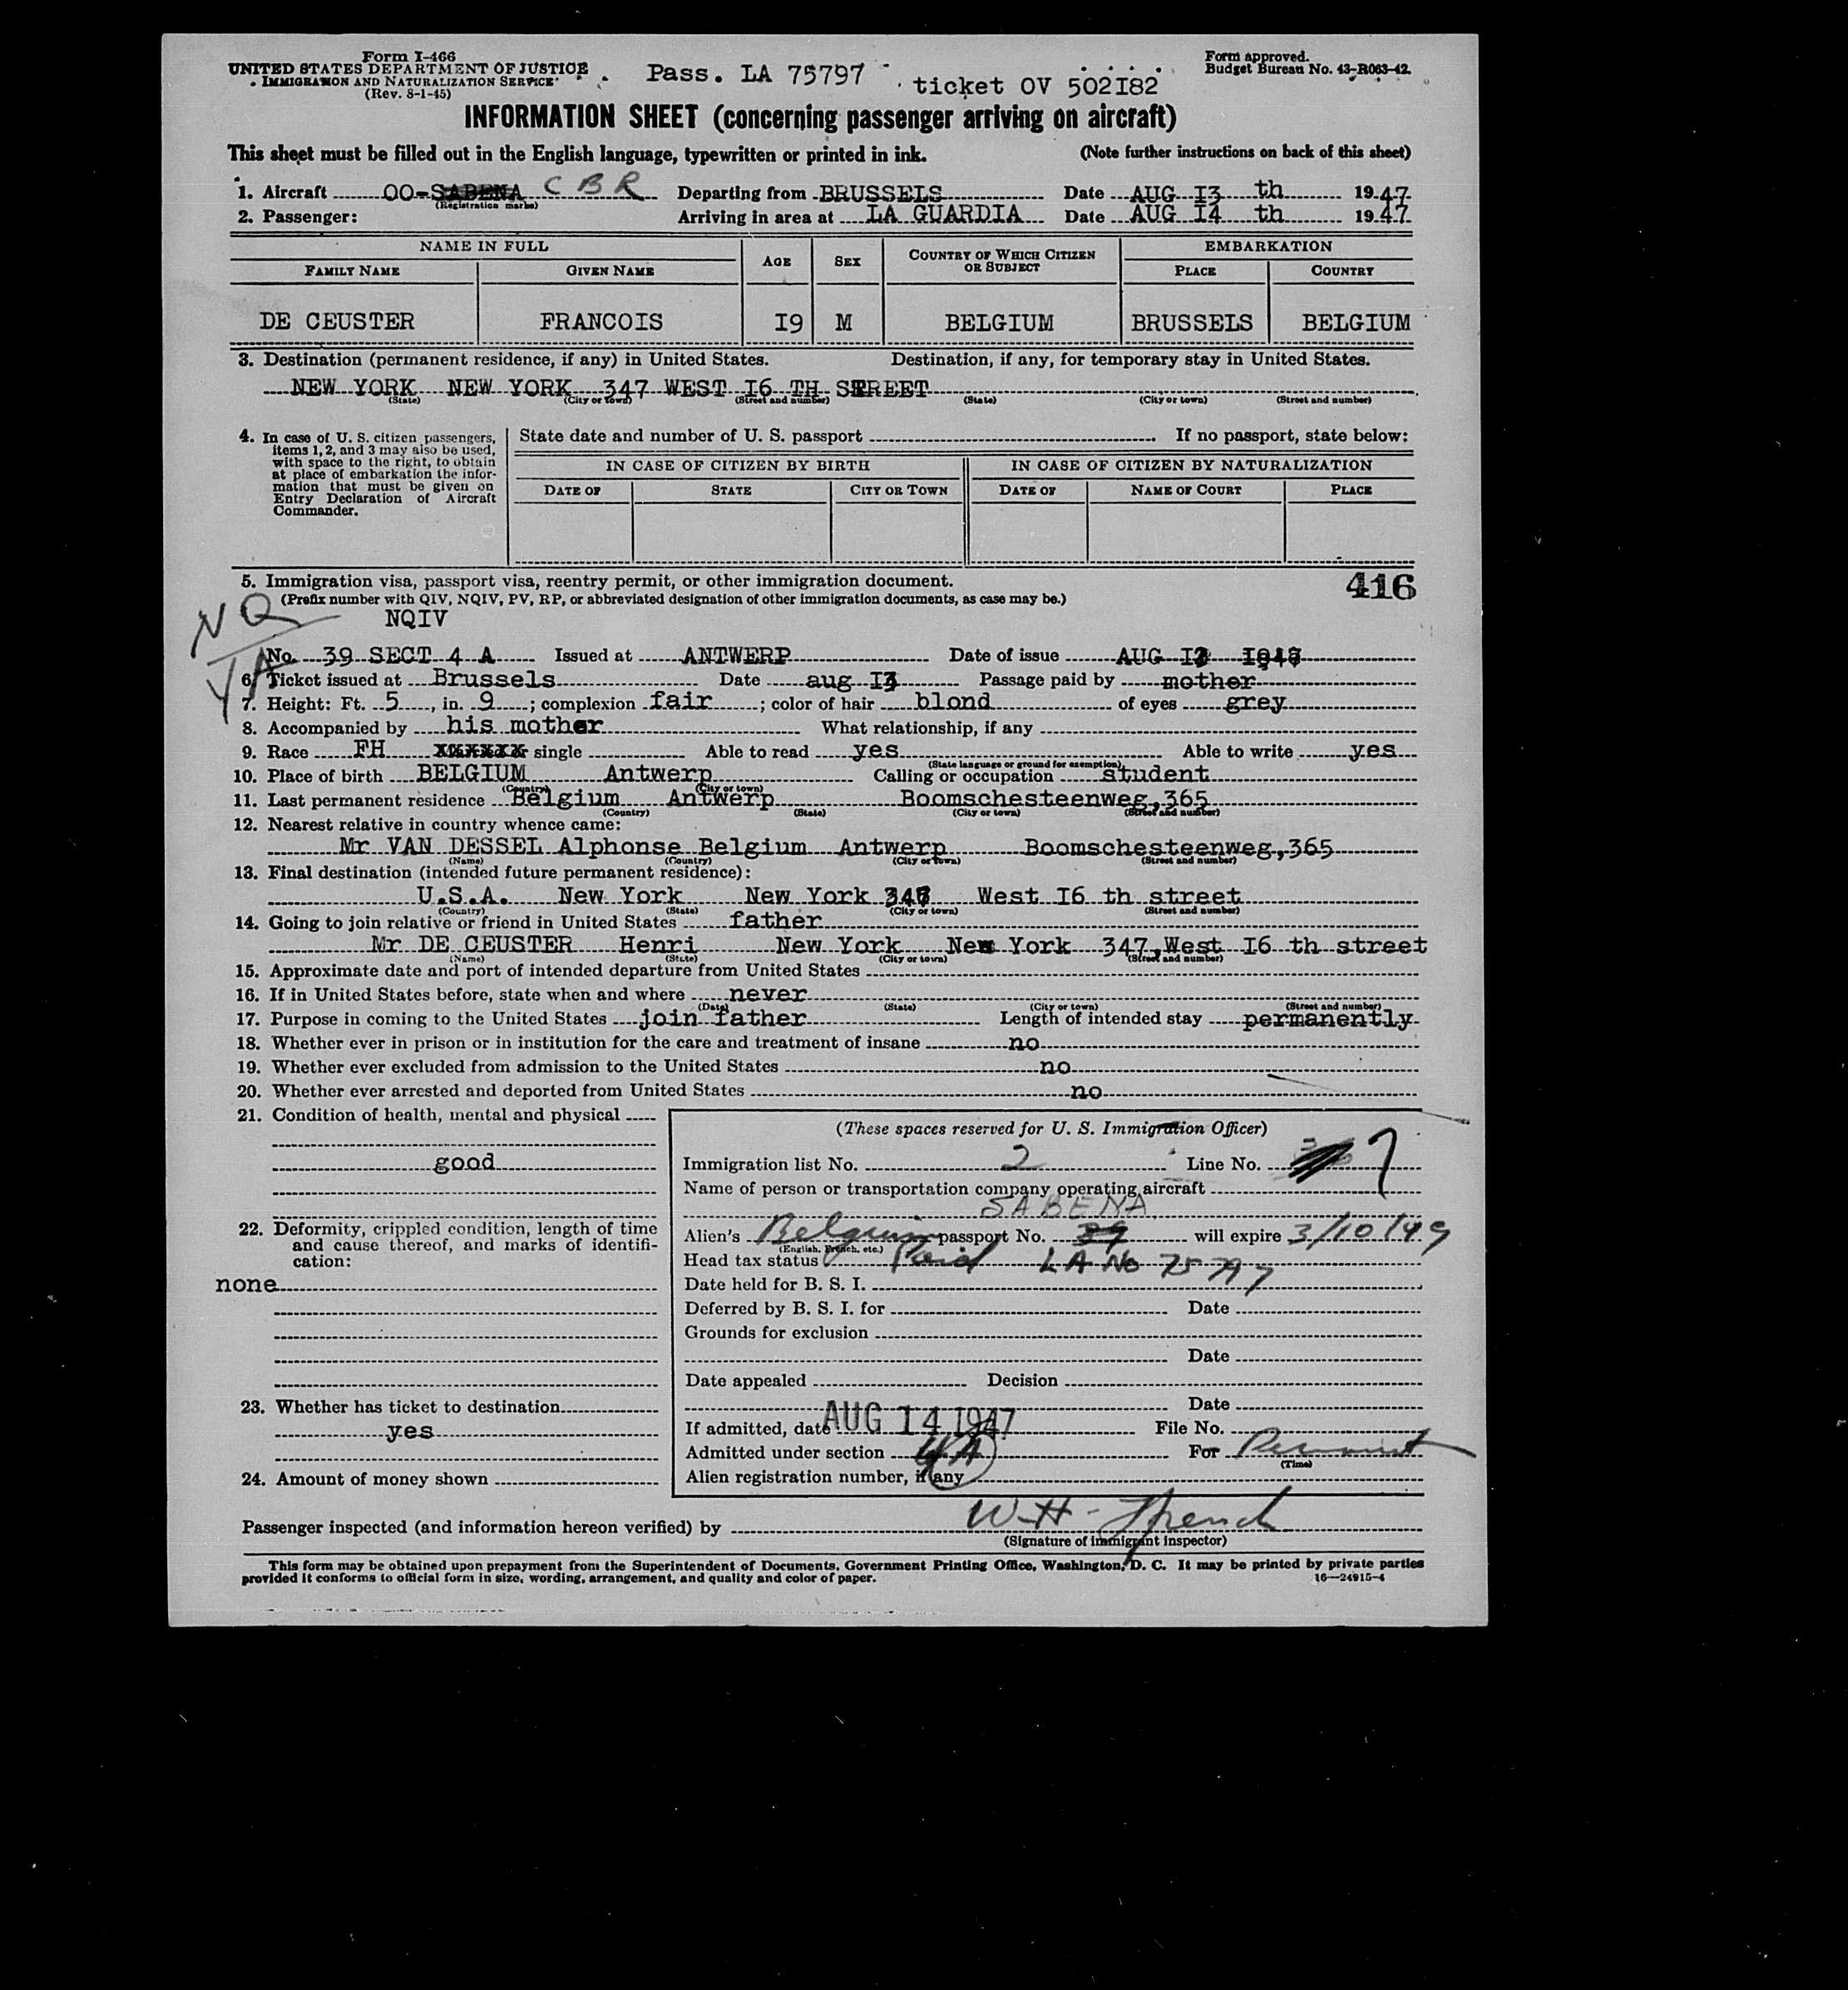 Form I-466
UNITED STATES DEPARTMENT OF JUSTICE
IMMIGRATION AND NATURALIZATION SERVICE
(Rev. 8-1-45)
Pass. LA 75797 ticket OV 502I82
Form approved.
Budget Bureau No. 43-R063-42.
INFORMATION SHEET (concerning passenger arriving on aircraft)
This sheet must be filled out in the English language, typewritten or printed in ink. (Note further instructions on back of this sheet)
1. Aircraft OO-SABENA CBR Departing from BRUSSELS Date AUG I3 th 1947
(Registration marks)
2. Passenger: Arriving in area at LA GUARDIA Date AUG I4 th 1947
NAME IN FULL AGE SEX COUNTRY OF WHICH CITIZEN OR SUBJECT EMBARKATION
FAMILY NAME GIVEN NAME PLACE COUNTRY
DE CEUSTER FRANCOIS I9 M BELGIUM BRUSSELS BELGIUM
3. Destination (permanent residence, if any) in United States. Destination, if any, for temporary stay in United States.
NEW YORK NEW YORK 347 WEST I6 TH STREET
(State) (City or town) (Street and number) (State) (City or town) (Street and number)
4. In case of U. S. citizen passengers,
items 1, 2, and 3 may also be used,
with space to the right, to obtain
at place of embarkation the infor-
mation that must be given on
Entry Declaration of Aircraft
Commander.
State date and number of U. S. passport . If no passport, state below:
IN CASE OF CITIZEN BY BIRTH IN CASE OF CITIZEN BY NATURALIZATION
DATE OF STATE CITY OR TOWN DATE OF NAME OF COURT PLACE
5. Immigration visa, passport visa, reentry permit, or other immigration document. 416
(Prefix number with QIV, NQIV, PV, RP, or abbreviated designation of other immigration documents, as case may be.)
NQ
4A
NQIV
No. 39 SECT 4 A Issued at ANTWERP Date of issue AUG
6. Ticket issued at Brussels Date aug I3 Passage paid by mother
7. Height: Ft. 5, in. 9; complexion fair; color of hair blond of eyes grey
8. Accompanied by his mother What relationship, if any
9. Race FH xxxxxxx single Able to read yes Able to write yes
(State language or ground for exemption)
10. Place of birth BELGIUM Antwerp Calling or occupation student
(Country) (City or town)
11. Last permanent residence Belgium Antwerp Boomschesteenweg,365
(Country) (State) (City or town) (Street and number)
12. Nearest relative in country whence came:
Mr VAN DESSEL Alphonse Belgium Antwerp Boomschesteenweg,365
(Name) (Country) (City or town) (Street and number)
13. Final destination (intended future permanent residence):
U.S.A. New York New York 347 West I6 th street
(Country) (State) (City or town) (Street and number)
14. Going to join relative or friend in United States father
Mr DE CEUSTER Henri New York New York 347,West I6 th street
(Name) (State) (City or town) (Street and number)
15. Approximate date and port of intended departure from United States
16. If in United States before, state when and where never
(Date) (State) (City or town) (Street and number)
17. Purpose in coming to the United States join father Length of intended stay permanently
18. Whether ever in prison or in institution for the care and treatment of insane no
19. Whether ever excluded from admission to the United States no
20. Whether ever arrested and deported from United States no
21. Condition of health, mental and physical
good
22. Deformity, crippled condition, length of time
and cause thereof, and marks of identifi-
cation:
none
23. Whether has ticket to destination
yes
24. Amount of money shown
(These spaces reserved for U. S. Immigration Officer)
Immigration list No. 2 Line No. 7
Name of person or transportation company operating aircraft
SABENA
Alien's Belgium passport No. 39 will expire 3/10/49
(English, French, etc.)
Head tax status Paid LA No 75797
Date held for B. S. I.
Deferred by B. S. I. for Date
Grounds for exclusion
Date
Date appealed Decision
Date
If admitted, date AUG 14 1947 File No.
Admitted under section 4A For Permanent
(Time)
Alien registration number, if any
Passenger inspected (and information hereon verified) by W H
(Signature of immigrant inspector)
This form may be obtained upon prepayment from the Superintendent of Documents, Government Printing Office, Washington, D. C. It may be printed by private parties
provided it conforms to official form in size, wording, arrangement, and quality and color of paper. 16—24915-4